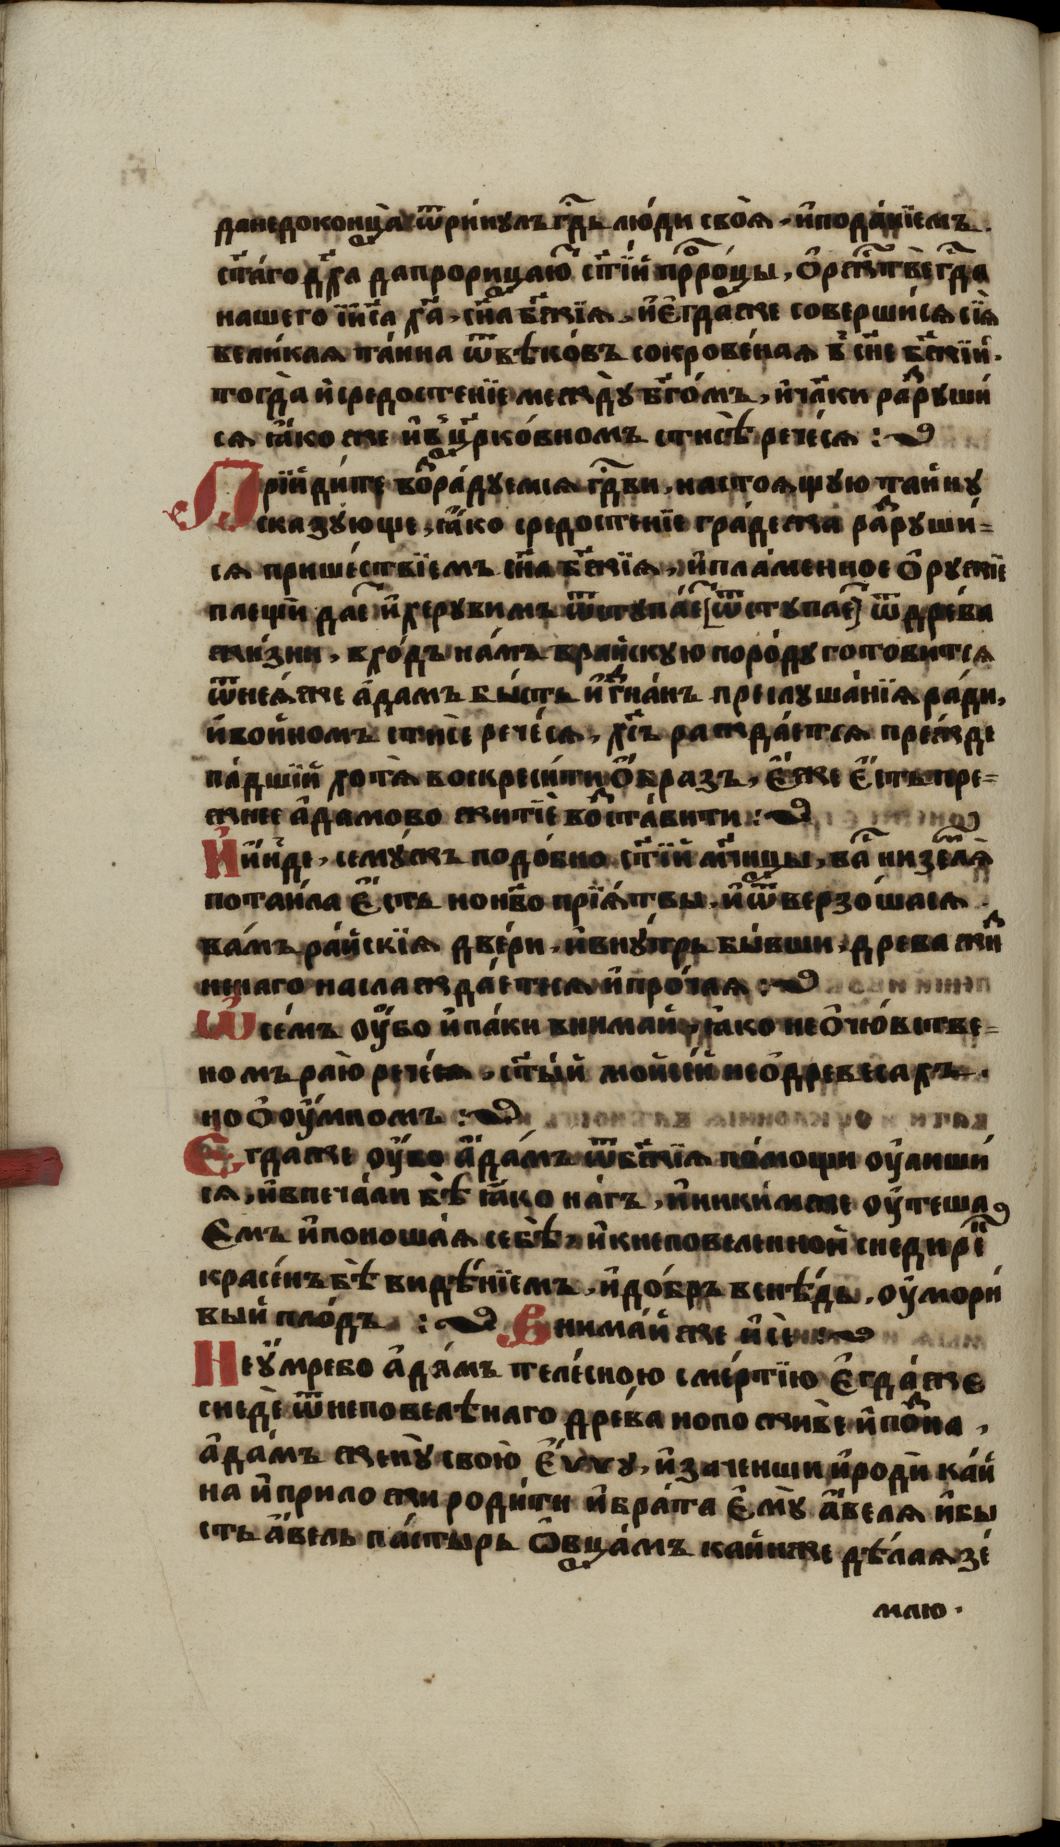 данедоконца̀ ѿри́нулъ гд҇ь лю́ди своѧ̀. и҆пода́нїемъ
ст҃а́го дх҃а дапрорицаю̑ ст҃і́и прⷪ҇ро́цы, ѻ҆рж҇твѣ гд҇а
нашего і҆и҃са хрⷭ҇та̀. сн҃а бж҃їѧ, и҆є҆гда́же соверши́сѧ сїѧ̀
вели́каѧ та́ина ѿвѣко́въ сокрове́наѧ в̾ сн҃е бж҃їи.
тогда̀ и҆средостенїе межд̀у бг҃о́мъ, и҆чл҃ки раⷥруши́
сѧ ꙗ҆́коже и҆в̾цр҃ко́вномъ стисѣ̀ рече́сѧ :
Прїиди́те воⷥра́дуемсѧ гд҇ви, настоѧ́щую тайну
сказу́юще, ꙗ҆́ко средостенїе гра́дежа раⷥруши́=
сѧ прише́ствїемъ сн҃а бж҃їѧ, и҆пла́менное ѻ҆ружїе
плещи дае҇ и҆херувимъ ѿступа́е҇ [ѿступае҇] ѿдре́ва
жи́зни, вхо́дъ на́мъ врайскую поро́ду готовитсѧ
ѿнеѧ́же а҆да́мъ бы́сть и҆ⷥгна́нъ преслуша́нїѧ ра́ди,
и҆войномъ сти́се рече́сѧ, хс҃ъ ражда́етсѧ пре́жде
па́дшїй хотѧ̀ воскреси́ти ѻ҆́бразъ, є҆́же є҆́сть пре=
жнее а҆да́мово житїѐ воⷥста́вити :
И҆и҆́нде, сему́жъ подо́бно ст҃і́и мч҃нцы, ва҇ низемлѧ̀
потаи́ла є҆́сть нонб҃о прїѧ́тъвы, и҆ѿверзо́шасѧ
ва́мъ ра́йскїѧ две́ри, и҆вну́трь бы́вши, древа жи́ⷥ
ннаго наслажда́етесѧ и҆про́чаѧ :
Ѿ се́мъ оу҆́бо и҆па́ки внимай, ꙗ҆́ко неѻ҆чю́вьстве=
номъ раю̀ рече́сѧ, ст҃ы́й мойсе́й неѻ҆древеса́хъ.
но ѻ҆оу҆́мномъ :
Є҆гдаже оу҆́бо а҆да́мъ ѿбж҃їѧ по́мощи оу҆лиши́
сѧ, и҆впеча́ли бѣ̀ ꙗ҆́ко на́гъ, и҆ники́мже оу҆теша
Емъ и҆поноша́ѧ себѣ̀, и҆кнеповеленной снеди ре҇
красе́нъ бѣ̀ видѣ́нїемъ, и҆до́бръ вснѣ́дь, оу҆мори́
вый пло́дъ : Внима́й же и҆сѐ :
Не оу҆́мре бо а҆да́мъ теле́сною сме́ртїю є҆гда́же
снедѐ ѿнеповелѣ́наго дре́ва нопо живѐ и҆поⷥна,
а҆да́мъ жену̀ свою̀ є҆́ѵгу, и҆заченши и҆родѝ ка́й
на и҆приложи роди́ти и҆бра́та є҆му̀ а҆́велѧ и҆бы
сть а҆́вель па́стырь ѻ҆вца́мъ каи́нже дѣ́лаѧ зе́
млю.